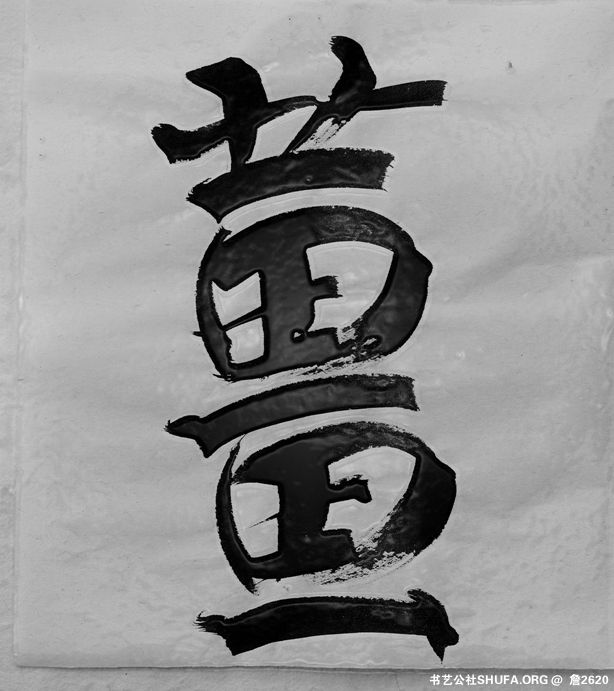 薑
书艺公社SHUFA.ORG @ 詹2620